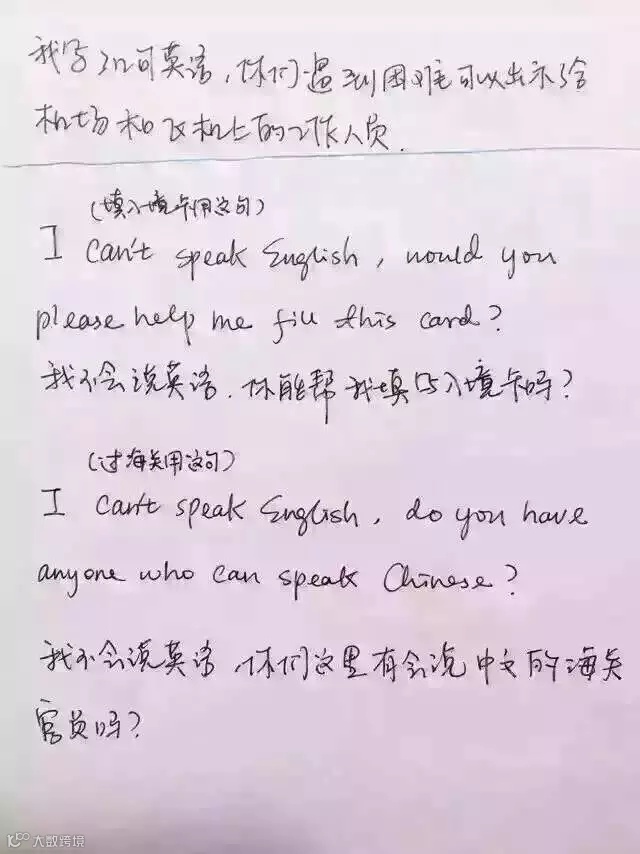 我写了几句英语，你们遇到困难可以出示给
机场和飞机上的工作人员.
(填入境卡用这句)
I can't speak English, would you
please help me fill this card?
我不会说英语.你能帮我填写入境卡吗?
(过海关用这句)
I can't speak English, do you have
anyone who can speak Chinese?
我不会说英语,你们这里有会说中文的海关
官员吗?
大数跨境